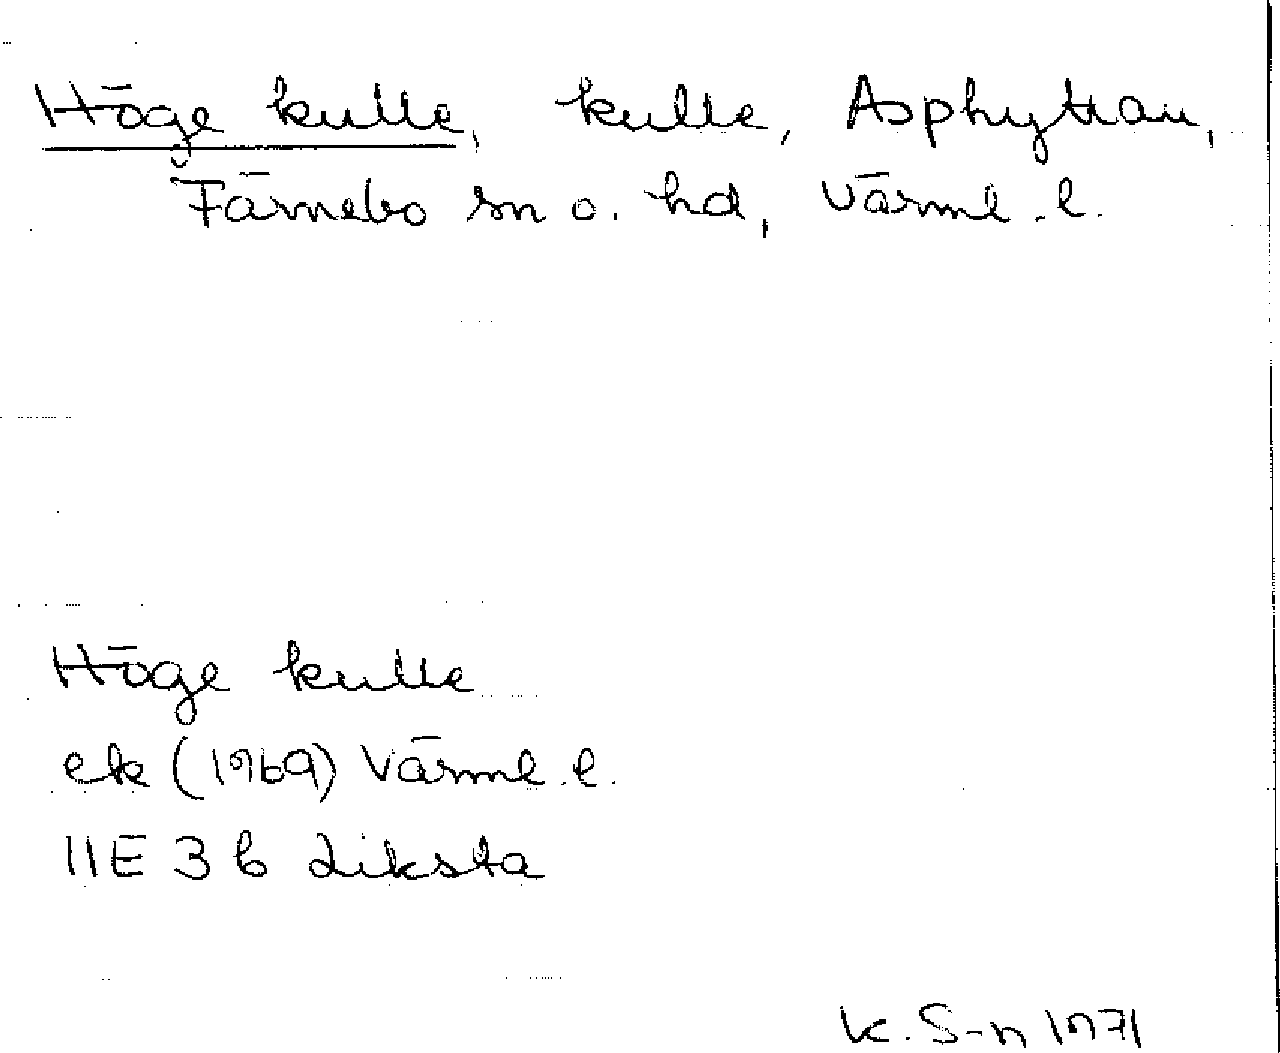 Höge kulle, kulle, Asphyttan,
Färnebo sn o. hd, Värml. l.
Höge kulle
ek (1969) Värml. l.
11E 3 b Liksta
K. S-n 1971